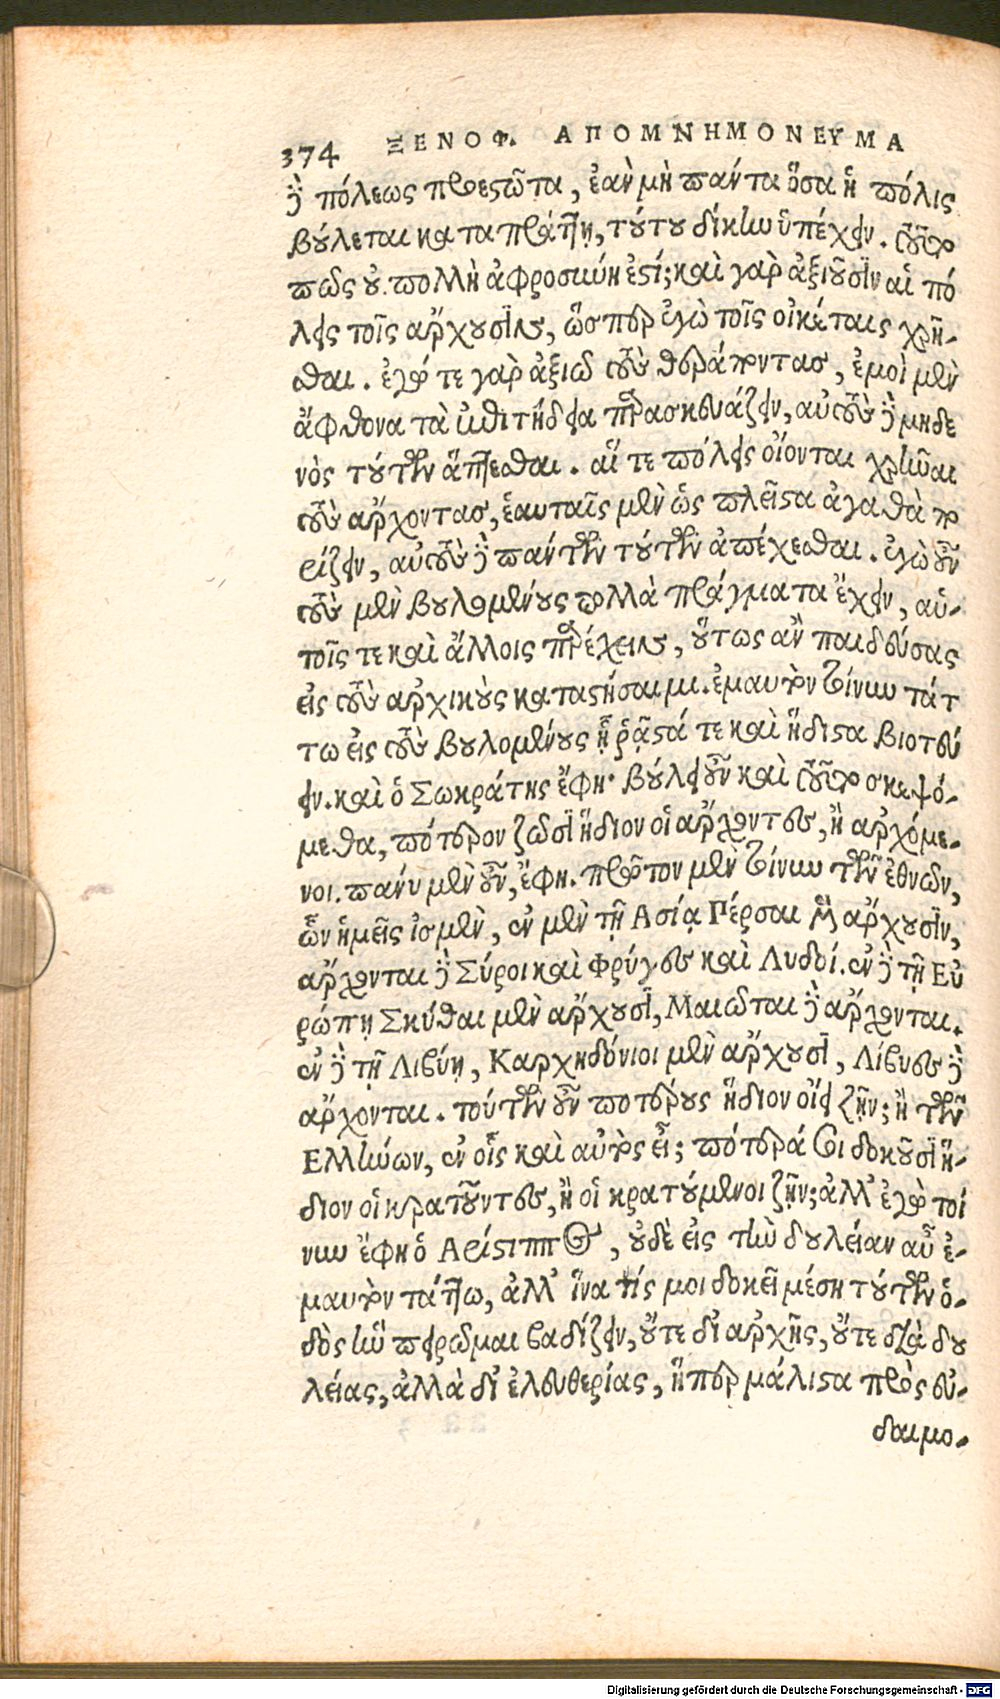 374 ΞΕΝΟΦ. ΑΠΟΜΝΗΜΟΝΕΥΜΑ
δὲ πόλεως προεστῶτα, ἐὰν μὴ πάντα ὅσα ἡ πόλις
βούλεται καταπράττῃ, τούτου δίκην ὑπέχειν. τοῦτο
πῶς οὐ πολλὴ ἀφροσύνη ἐστί; καὶ γὰρ ἀξιοῦσιν αἱ πό
λεις τοῖς ἄρχουσιν, ὥσπερ ἐγὼ τοῖς οἰκέταις χρῆ-
σθαι. ἐγώ τε γὰρ ἀξιῶ τοὺς θεράποντας, ἐμοὶ μὲν
ἄφθονα τὰ ἐπιτήδεια παρασκευάζειν, αὐτοὺς δὲ μηδε
νὸς τούτων ἅπτεσθαι. αἵ τε πόλεις οἴονται χρῆναι
τοὺς ἄρχοντας, ἑαυταῖς μὲν ὡς πλεῖστα ἀγαθὰ πο
ρίζειν, αὐτοὺς δὲ πάντων τούτων ἀπέχεσθαι. ἐγὼ οὖν
τοὺς μὲν βουλομένους πολλὰ πράγματα ἔχειν, αὑ-
τοῖς τε καὶ ἄλλοις παρέχειν, οὕτως ἂν παιδεύσας
εἰς τοὺς ἀρχικοὺς καταστήσαιμι. ἐμαυτὸν τοίνυν τάτ
τω εἰς τοὺς βουλομένους ᾗ ῥᾷστά τε καὶ ἥδιστα βιοτεύ
ειν. καὶ ὁ Σωκράτης ἔφη· βούλει οὖν καὶ τοῦτο σκεψό-
μεθα, πότερον ζῶσι ἥδιον οἱ ἄρχοντες, ἢ ἀρχόμε-
νοι. πάνυ μὲν οὖν, ἔφη. πρῶτον μὲν τοίνυν τῶν ἐθνῶν,
ὧν ἡμεῖς ἴσμεν, ἐν μὲν τῇ Ασίᾳ Πέρσαι μὲν ἄρχουσιν,
ἄρχονται δὲ Σύροι καὶ Φρύγες καὶ Λυδοί. ἐν δὲ τῇ Εὐ
ρώπῃ Σκύθαι μὲν ἄρχουσι, Μαιῶται δὲ ἄρχονται.
ἐν δὲ τῇ Λιβύῃ, Καρχηδόνιοι μὲν ἄρχουσι, Λίβυες δὲ
ἄρχονται. τούτων οὖν ποτέρους ἥδιον οἴει ζῆν; ἢ τῶν
Ελλήνων, ἐν οἷς καὶ αὐτὸς εἶ; πότερά σοι δοκοῦσι ἥ-
διον οἱ κρατοῦντες, ἢ οἱ κρατούμενοι ζῆν; ἀλλ' ἐγώ τοί
νυν ἔφη ὁ Αρίστιππος, οὐδὲ εἰς τὴν δουλείαν αὖ ἐ-
μαυτὸν τάττω, ἀλλ' ἵνα τίς μοι δοκεῖ μέση τούτων ὁ-
δὸς ἣν πειρῶμαι βαδίζειν, οὔτε δι' ἀρχῆς, οὔτε διὰ δου
λείας, ἀλλὰ δι' ἐλευθερίας, ἥπερ μάλιστα πρὸς εὐ-
δαιμο-
Digitalisierung gefördert durch die Deutsche Forschungsgemeinschaft - DFG